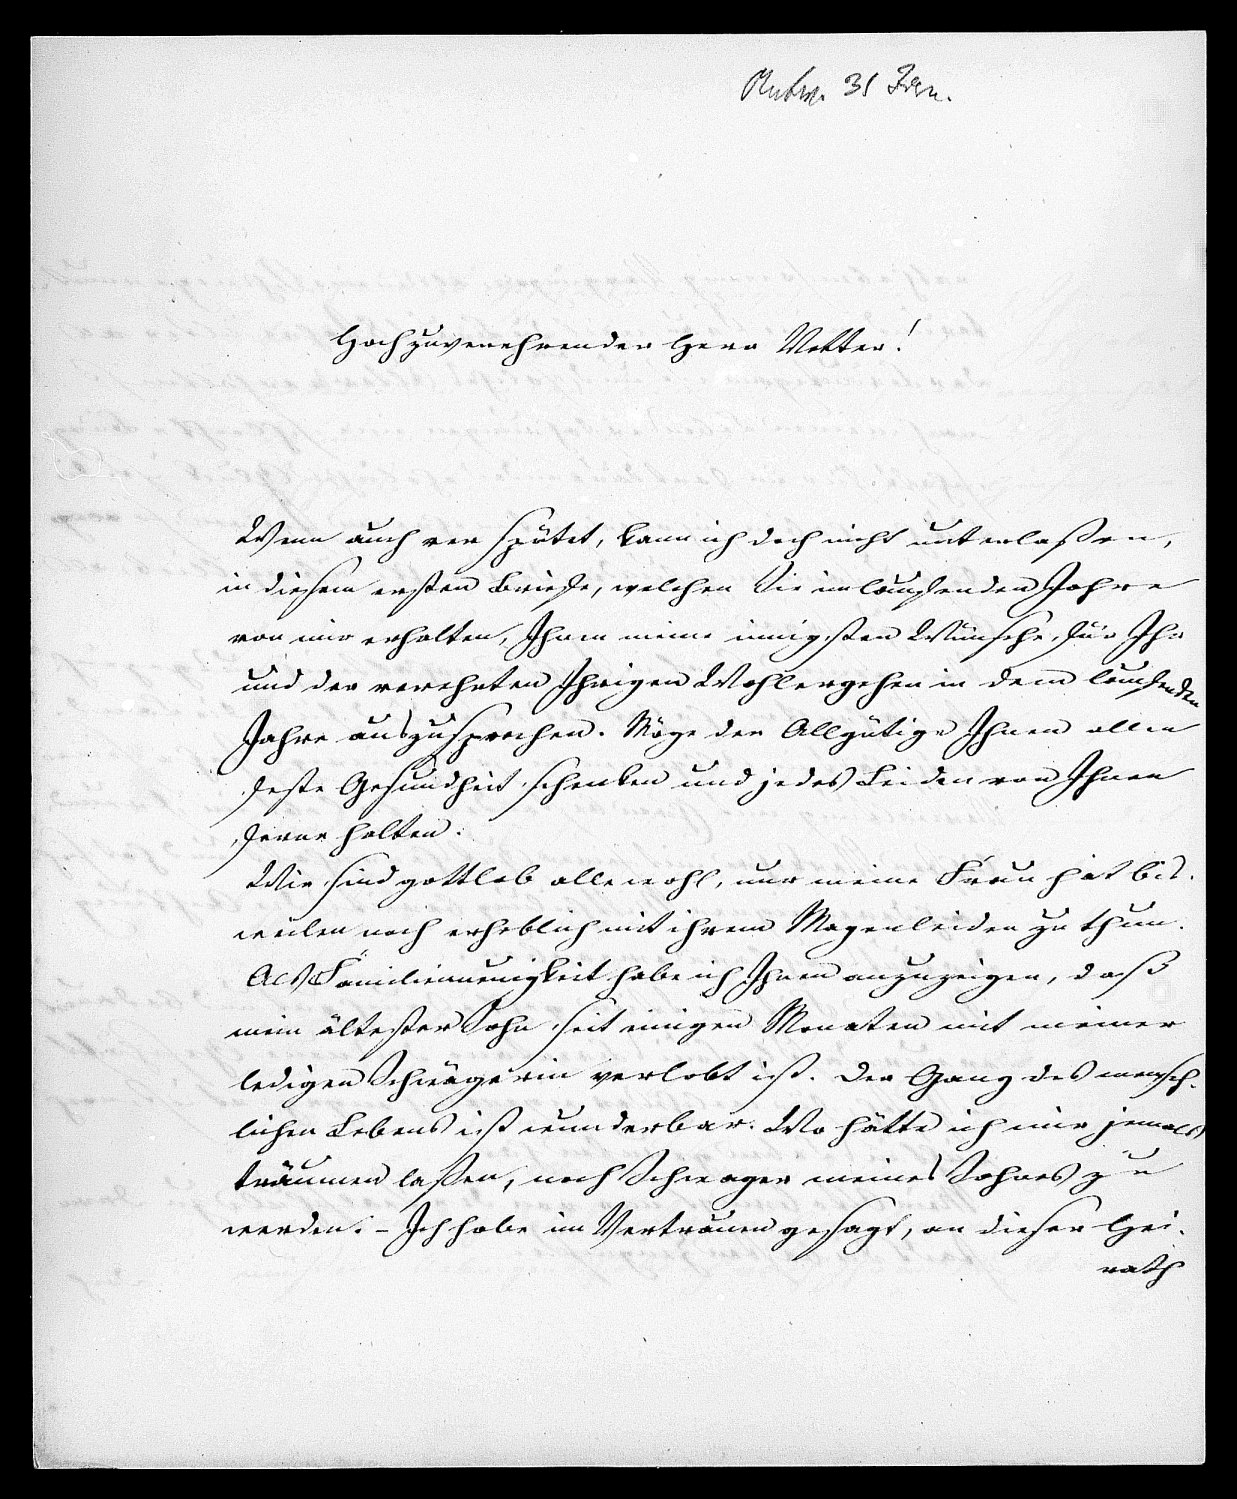 Antw. 31 Jan.
Hochzuverehrender Herr Vetter!
Wenn auch verspätet, kann ich doch nicht unterlaßen,
in diesem ersten Briefe, welchen Sie im laufenden Jahre
von mir erhalten, Ihnen meine innigsten Wünsche für Ihr
und der verehrten Ihrigen Wohlergehen in dem laufenden
Jahre auszusprechen. Möge der Allgütige Ihnen allen
feste Gesundheit schenken und jedes Leiden von Ihnen
ferne halten.
Wir sind gottlob alle wohl, nur meine Frau hat bis-
weilen noch erheblich mit ihrem Magenleiden zu thun.
Als Familienneuigkeit habe ich Ihnen anzuzeigen, daß
mein ältester Sohn seit einigen Monaten mit meiner
ledigen Schwägerin verlobt ist. Der Gang des mensch-
lichen Lebens ist wunderbar. Wo hätte ich mir jemals
träumen laßen, noch Schwager meines Sohnes zu
werden. – Ich habe im Vertrauen gesagt, an dieser Hei-
rath